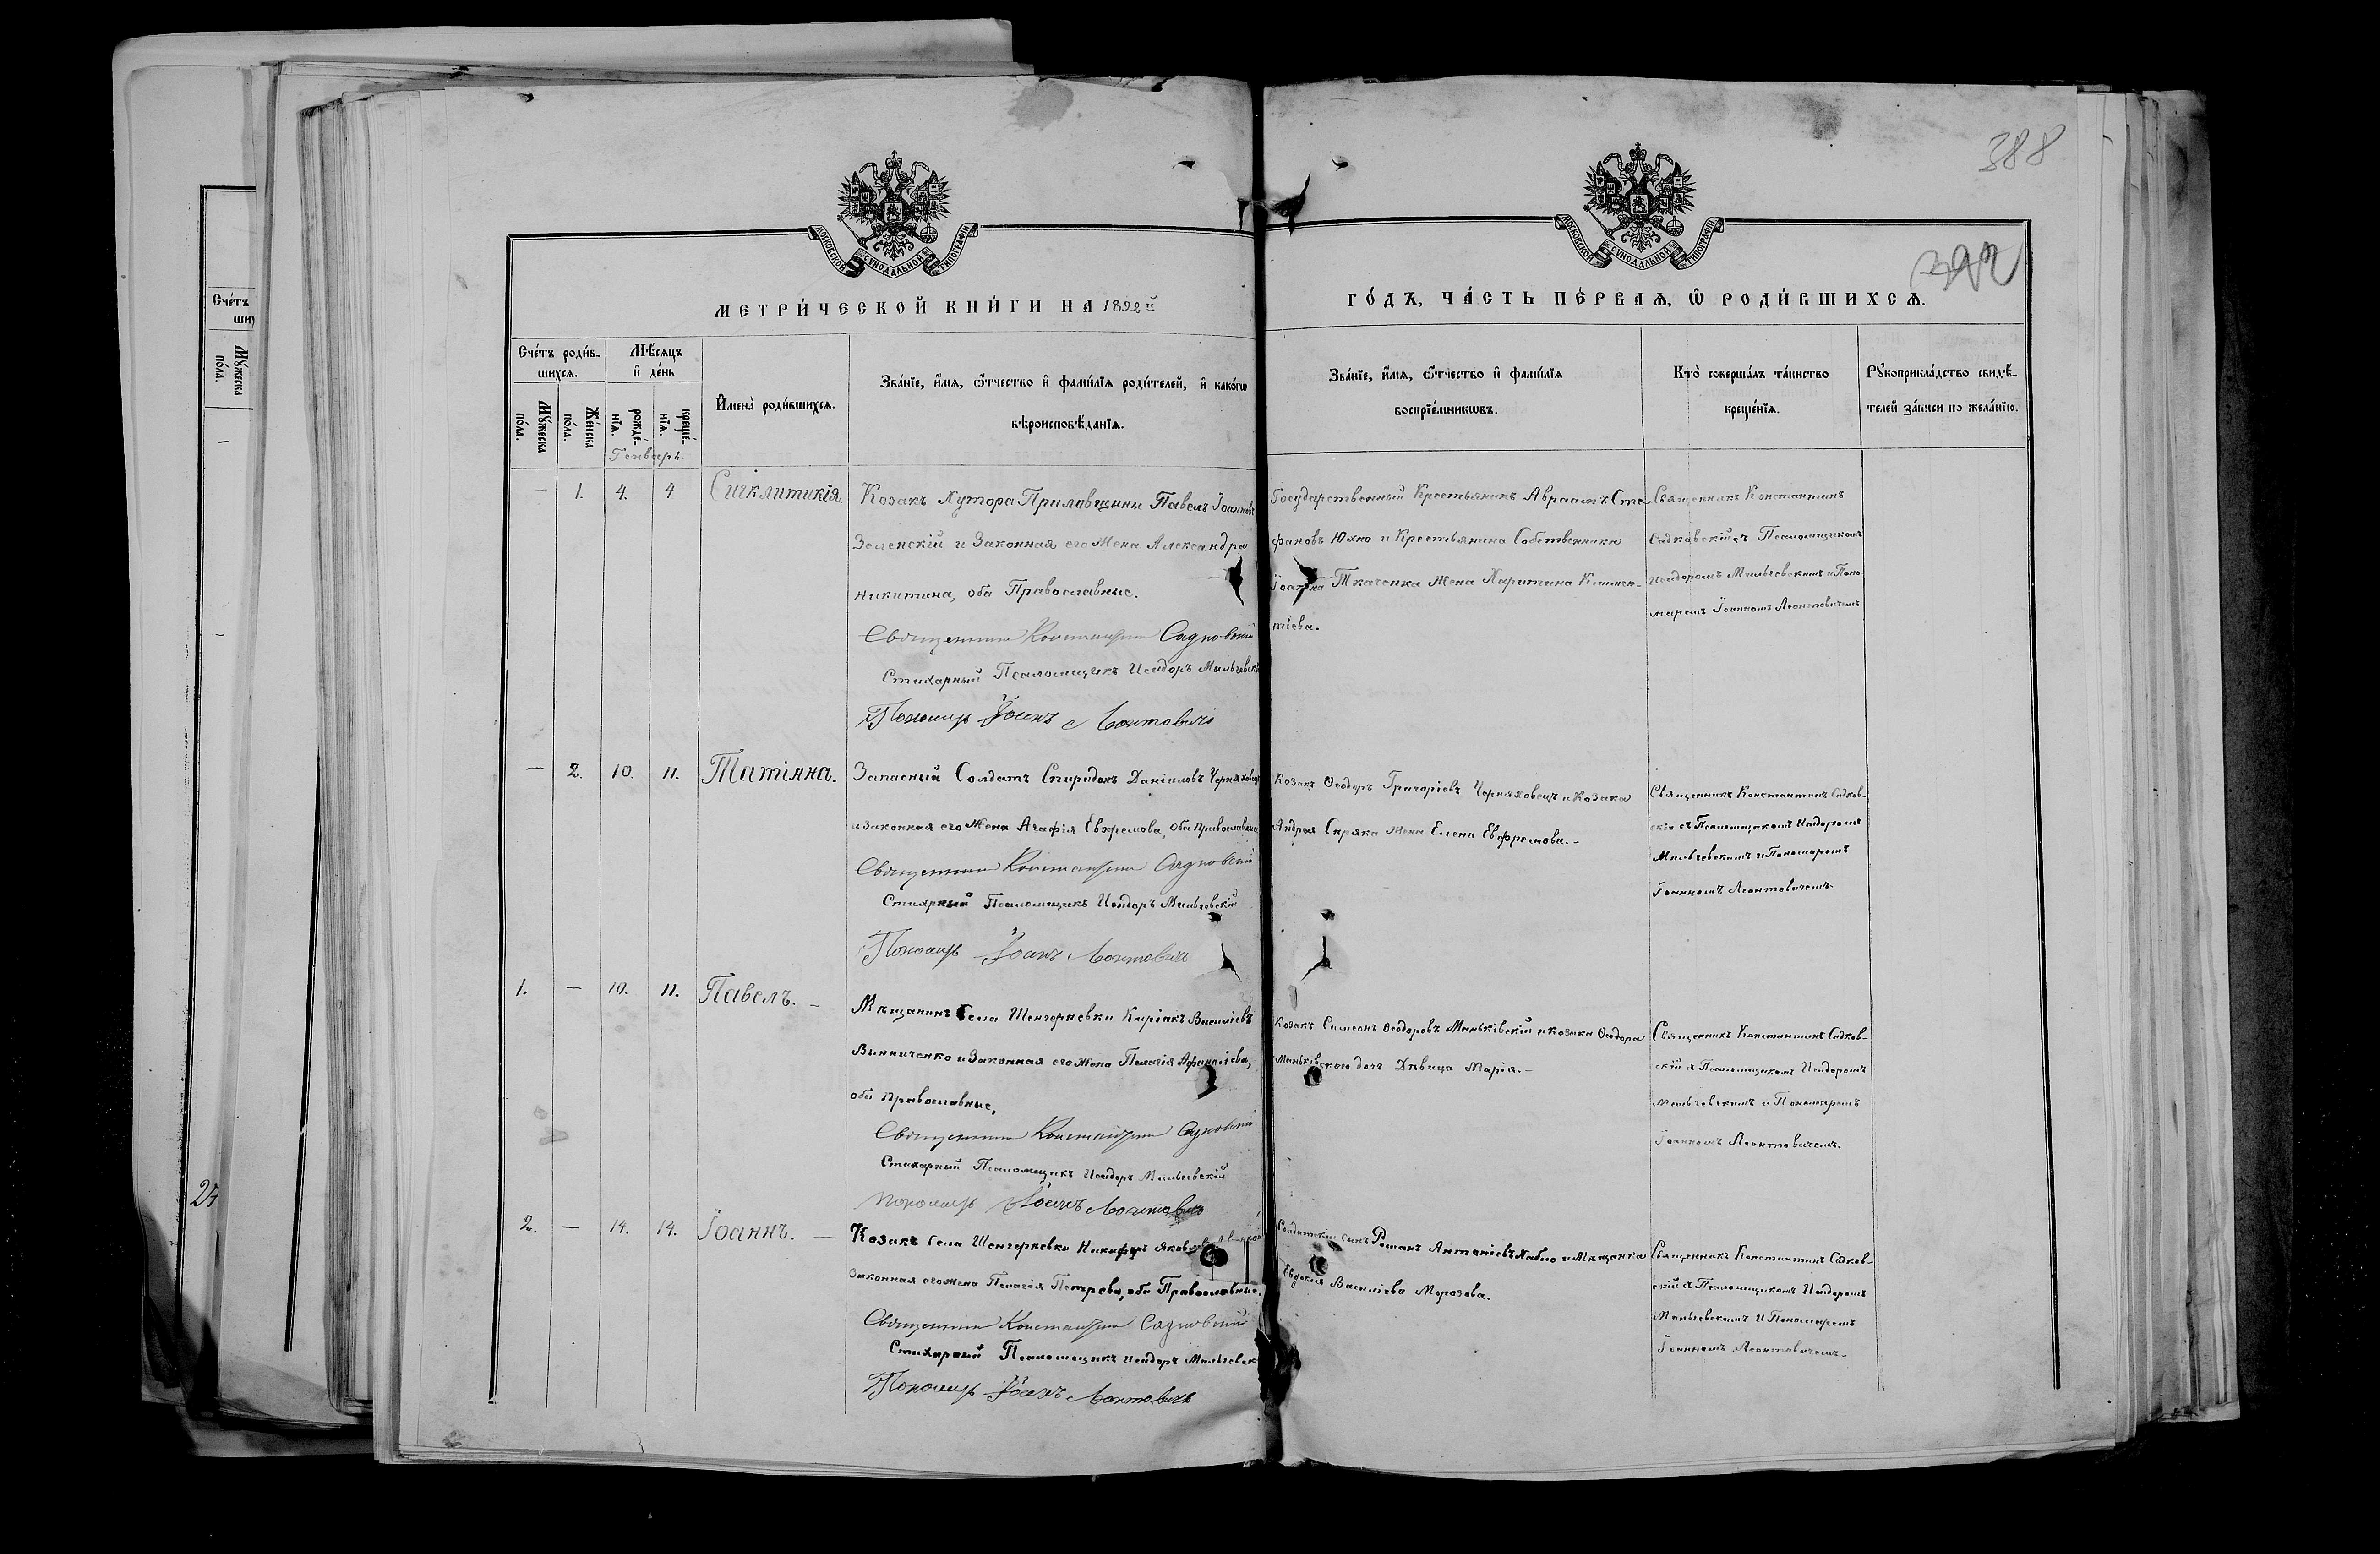 388
392
МОСКОВСКОЙ СѴНОДАЛЬНОЙ ТИПОГРАФІИ
МОСКОВСКОЙ СѴНОДАЛЬНОЙ ТИПОГРАФІИ
МЕТРИ́ЧЕСКОЙ КНИ́ГИ НА 1892й
ГО́ДЪ, ЧА́СТЬ ПЕ́РВАѦ, Ѽ РОДИ́ВШИХСѦ.
Сче́тъ роди́в-
шихсѧ.
Мѣ́сѧцъ
и҆ де́нь
Мꙋ́жеска
по́ла.
Же́нска
по́ла.
рожде́-
нїѧ.
креще́-
нїѧ.
И҆мена̀ роди́вшихсѧ.
Зва́нїе, и҆́мѧ, ѻ҆́тчество и҆ фами́лїѧ роди́телей, и҆ како́гѡ
вѣроисповѣ́данїѧ.
Зва́нїе, и҆́мѧ, ѻ҆́тчество и҆ фами́лїѧ
воспрїе́мникѡвъ.
Кто̀ соверша́лъ та́инство
креще́нїѧ.
Рꙋкоприкла́дство свидѣ́-
телей за́писи по жела́нїю.
Генварь
— 1. 4. 4 Сигклитикія.
Козакъ Хутора Прилавщины Павелъ Іоанновъ
Зеленскій и Законная его Жена Александра
Никитина, оба Православные.
Священникъ Константинъ Садковскій
Стихарный Псаломщикъ Исидоръ Мильчевскій
Пономарь Іоанъ Леонтовичъ
Государственный Крестьянинъ Авраамъ Сте-
фановъ Юхно и Крестьянина Собственника
Іоанна Ткаченка Жена Харитина Климен-
тіева.
Священникъ Константинъ
Садковскій съ Псаломщикомъ
Исидоромъ Мильчевскимъ и Поно-
маремъ Іоанномъ Леонтовичемъ
— 2. 10. 11. Татіяна.
Запасный Солдатъ Спиридонъ Даніиловъ Черняховецъ
и законная его Жена Агафія Евфремова, Оба Православные
Священникъ Константинъ Садковскій
Стихарный Псаломщикъ Исидоръ Мильчевскій
Пономарь Іоанъ Леонтовичъ
Козакъ Ѳеодоръ Григоріевъ Черняховецъ и Козака
Андрея Скряка Жена Елена Евфремова.-
Священникъ Константинъ Садков-
скій съ Псаломщикомъ Исидоромъ
Мильчевскимъ и Пономаремъ
Іоанномъ Леонтовичемъ-
1. — 10. 11. Павелъ. —
Мѣщанинъ Села Шенгерѣевки Киріакъ Василіевъ
Винниченко и Законная его Жена Пелагія Афанасіева,
оба Православные,
Священникъ Константинъ Садковскій
Стихарный Псаломщикъ Исидоръ Мильчевскій
Пономарь Іоанъ Леонтовичъ
Козакъ Симеонъ Ѳеодоровъ Маньківскій и козака Ѳеодора
Маньківского дочь Дѣвица Марія.-
Священникъ Константинъ Садков-
скій съ Псаломщикомъ Исидоромъ
Мильчевскимъ и Пономаремъ
Іоанномъ Леонтовичемъ.
2. — 14. 14. Іоаннъ. —
Козакъ Села Шенгерѣевки Никифоръ Яковлевъ
Законная его жена Пелагія Петрова, оба Православные.
Священникъ Константинъ Садковскій
Стихарный Псаломщикъ Исидоръ Мильчевскій
Пономарь Іоанъ Леонтовичъ
Солдатскій сынъ Романъ Антоніевъ Хабло и Мѣщанка
Евдокія Василіева Морозова.
Священникъ Константинъ Садков-
скій съ Псаломщикомъ Исидоромъ
Мильчевскимъ и Пономаремъ
Іоанномъ Леонтовичемъ-
Сче́тъ
Мꙋ́жеска
по́ла.